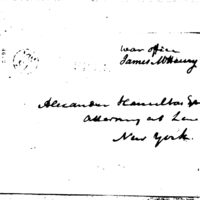 War office
James McHenry
Alexander Hamilton Esq
Attorney at Law
New York.